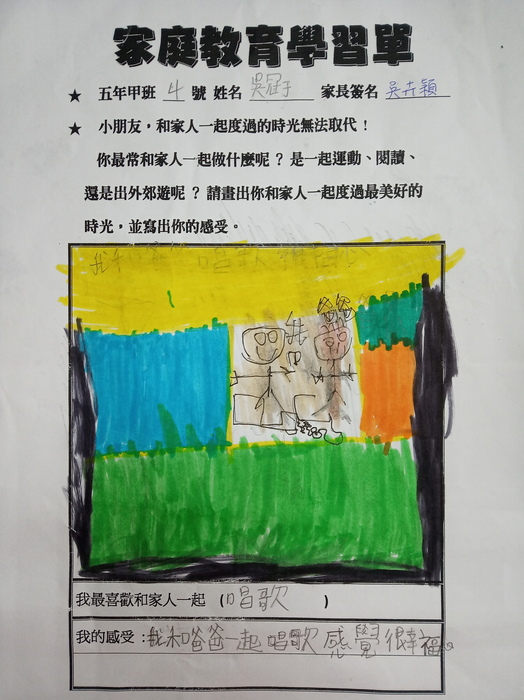 家庭教育學習單
★ 五年甲班 4 號 姓名 吳冠于 家長簽名 吳卉穎
★ 小朋友，和家人一起度過的時光無法取代！
你最常和家人一起做什麼呢？是一起運動、閱讀、
還是出外郊遊呢？請畫出你和家人一起度過最美好的
時光，並寫出你的感受。
我和 唱歌
我 爸爸
我最喜歡和家人一起 (唱歌 )
我的感受：我和爸爸一起唱歌感覺很幸福。